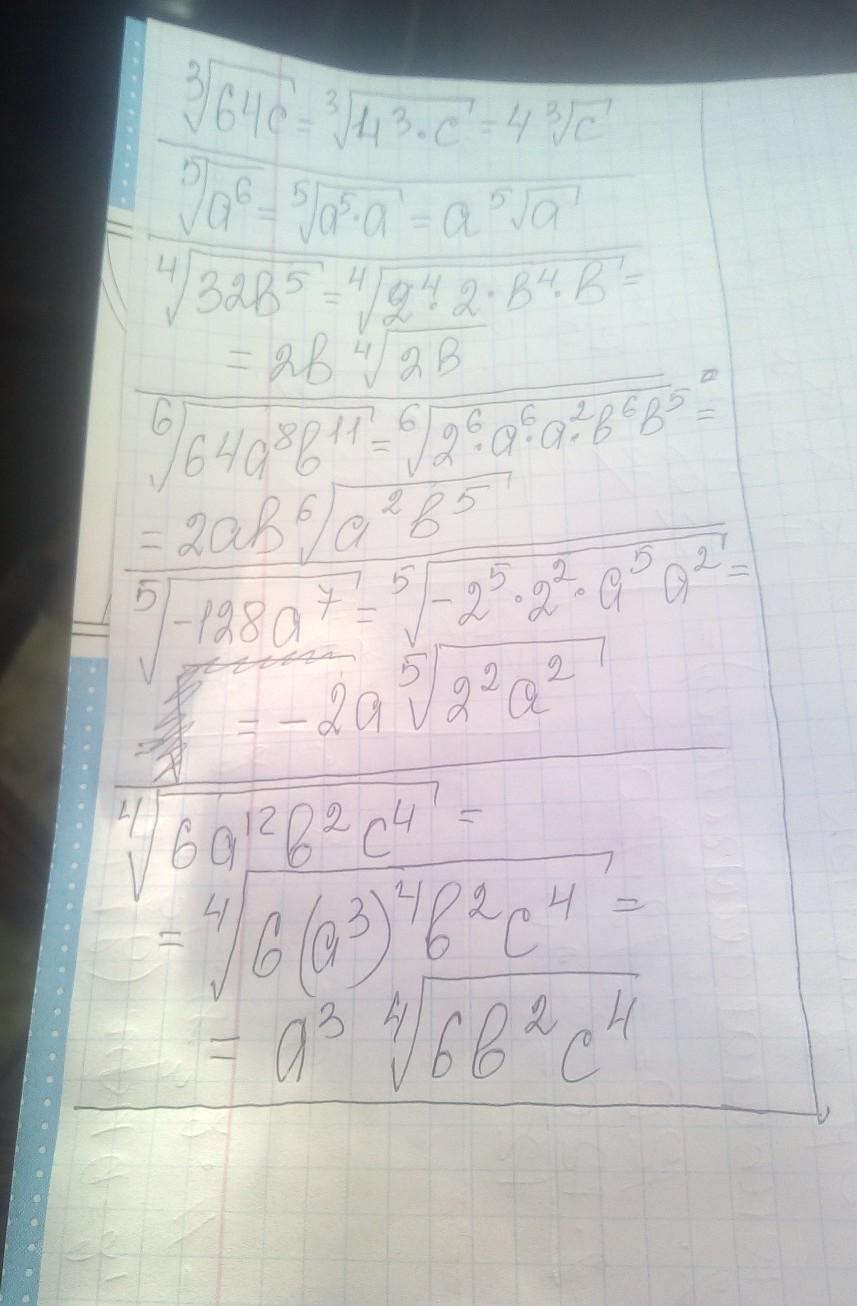 ∛64c = ∛4³·c = 4∛c
⁵√a⁶ = ⁵√a⁵·a = a ⁵√a
⁴√32b⁵ = ⁴√2⁴·2·b⁴·b =
= 2b ⁴√2b
⁶√64a⁸b¹¹ = ⁶√2⁶·a⁶·a²·b⁶b⁵ =
= 2ab ⁶√a²b⁵
⁵√-128a⁷ = ⁵√-2⁵·2²·a⁵a² =
= -2a ⁵√2²a²
⁴√6a¹²b²c⁴ =
= ⁴√6(a³)⁴b²c⁴ =
= a³ ⁴√6b²c⁴